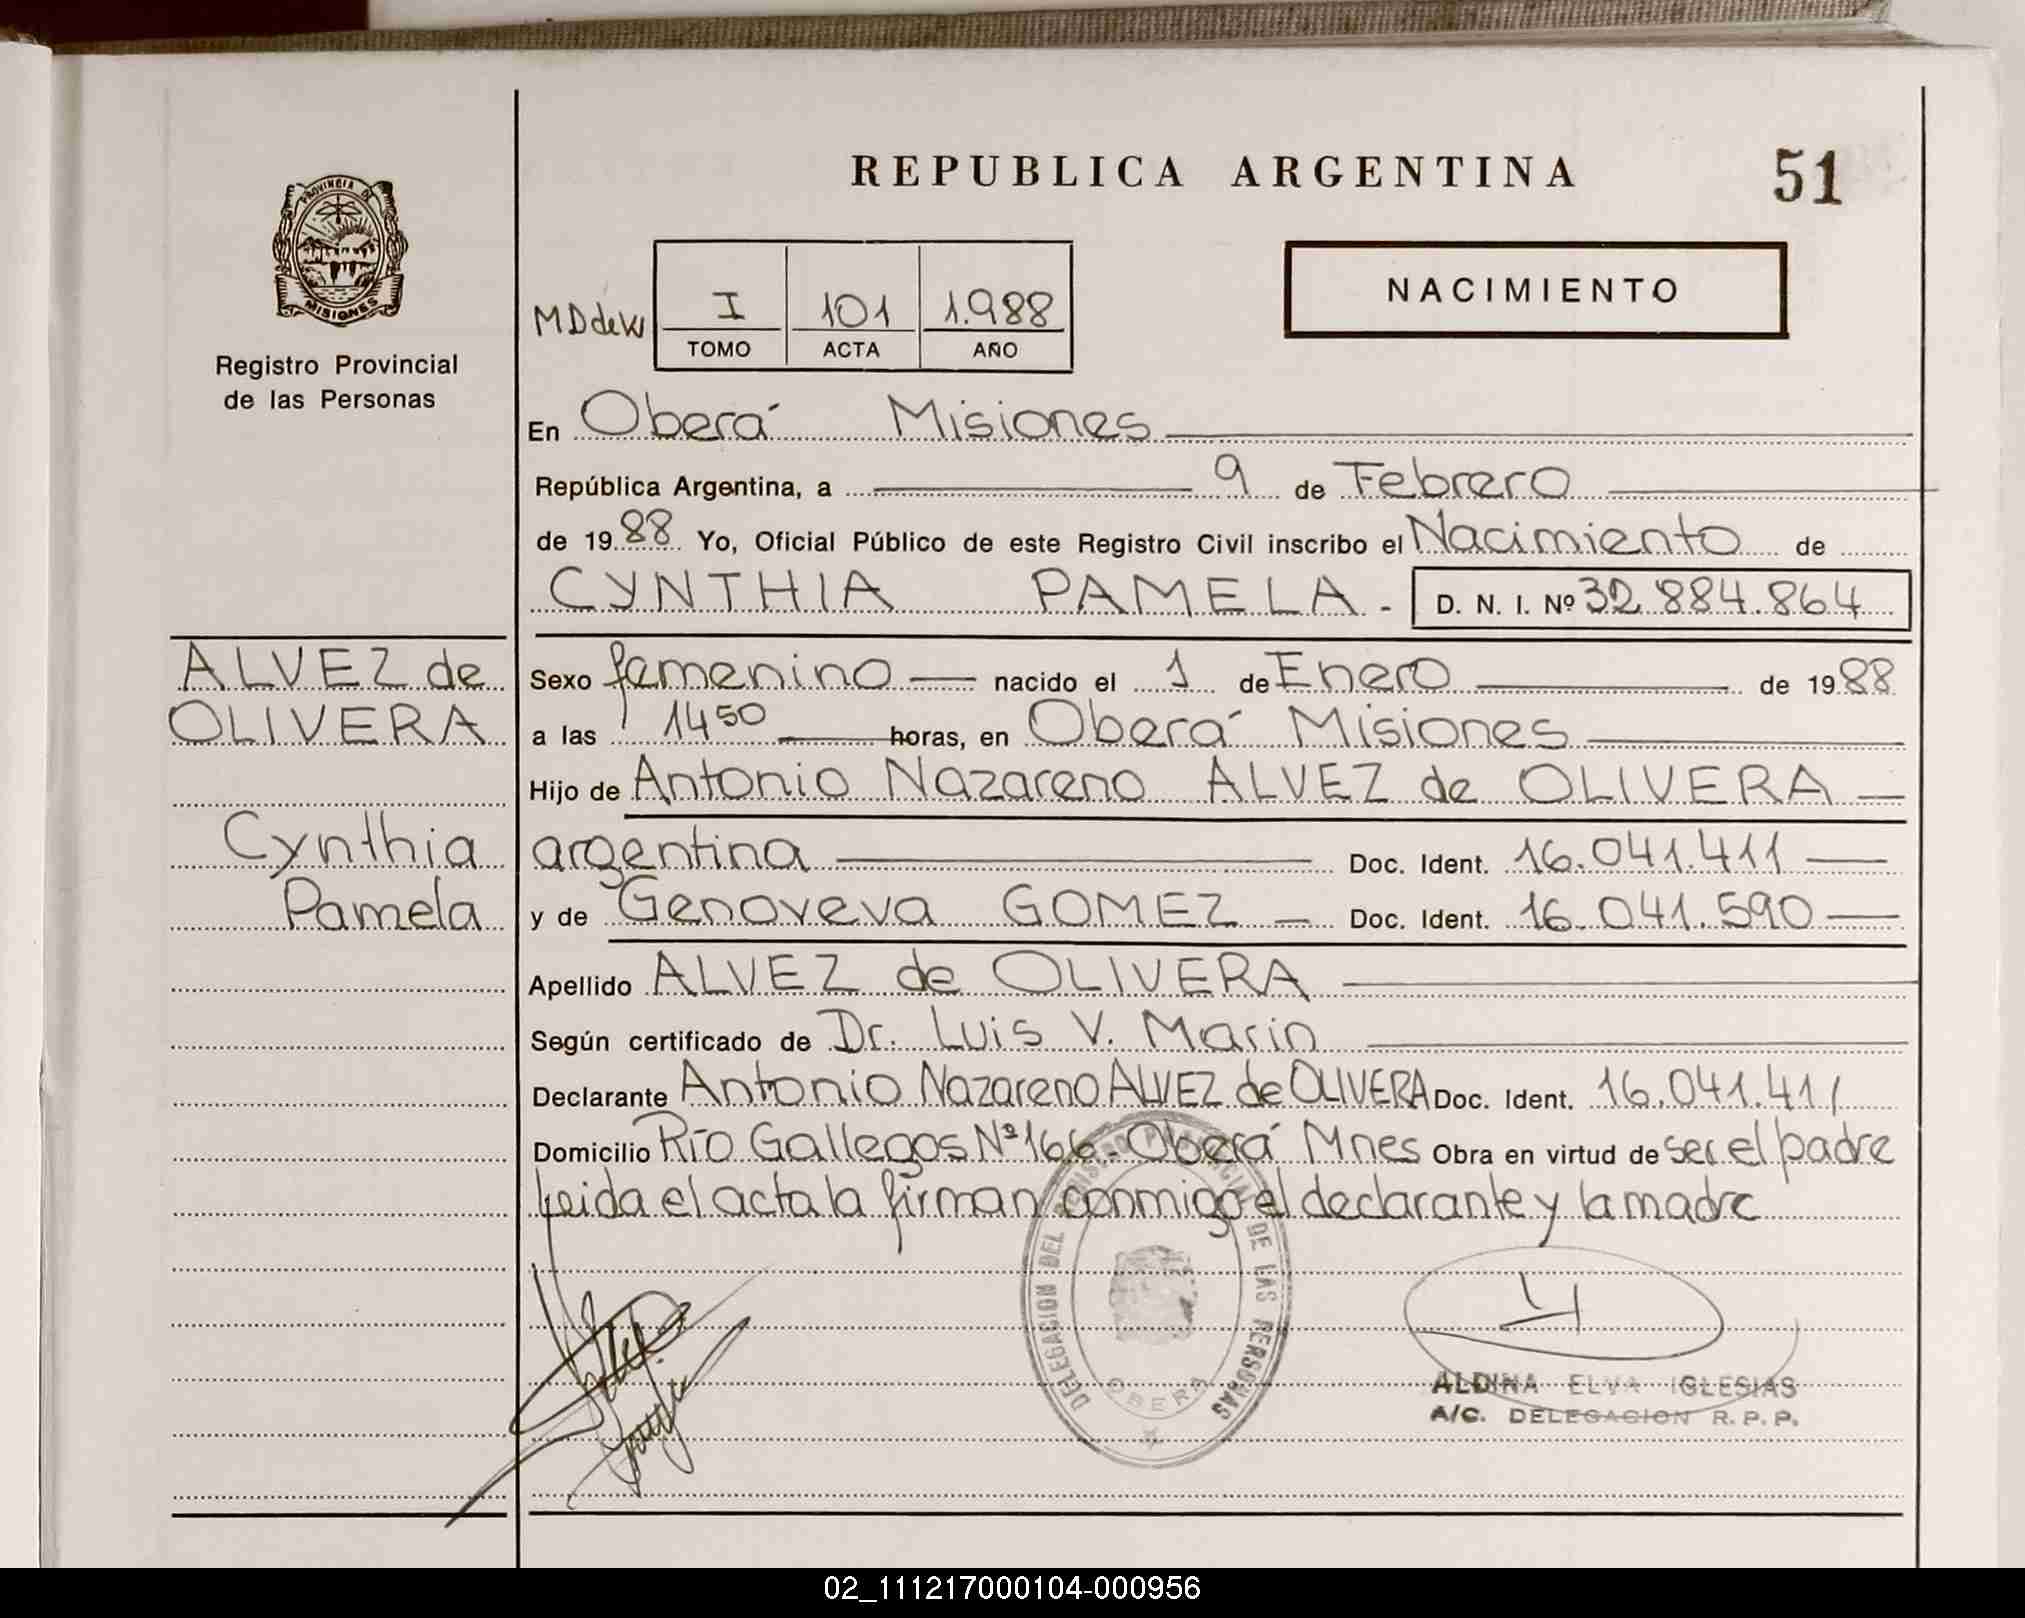 REPUBLICA ARGENTINA
51
PROVINCIA DE
MISIONES
Registro Provincial
de las Personas
NACIMIENTO
MDdeW
I 101 1.988
TOMO ACTA AÑO
En Oberá Misiones
República Argentina, a 9 de Febrero
de 1988 Yo, Oficial Público de este Registro Civil inscribo el Nacimiento de
CYNTHIA PAMELA - D. N. I. Nº 32.884.864
ALVEZ de
OLIVERA
Cynthia
Pamela
Sexo femenino nacido el 1 de Enero de 1988
a las 14 50 horas, en Oberá Misiones
Hijo de Antonio Nazareno ALVEZ de OLIVERA
argentina Doc. Ident. 16.041.411
y de Genoveva GOMEZ Doc. Ident. 16.041.590
Apellido ALVEZ de OLIVERA
Según certificado de Dr. Luis V. Marin
Declarante Antonio Nazareno ALVEZ de OLIVERA Doc. Ident. 16.041.411
Domicilio Río Gallegos Nº 166. Oberá Mnes Obra en virtud de ser el padre
Leida el acta la firman conmigo el declarante y la madre
DELEGACION DEL REGISTRO PROVINCIAL DE LAS PERSONAS
OBERA
ALDINA ELVA IGLESIAS
A/C. DELEGACION R. P. P.
02_111217000104-000956